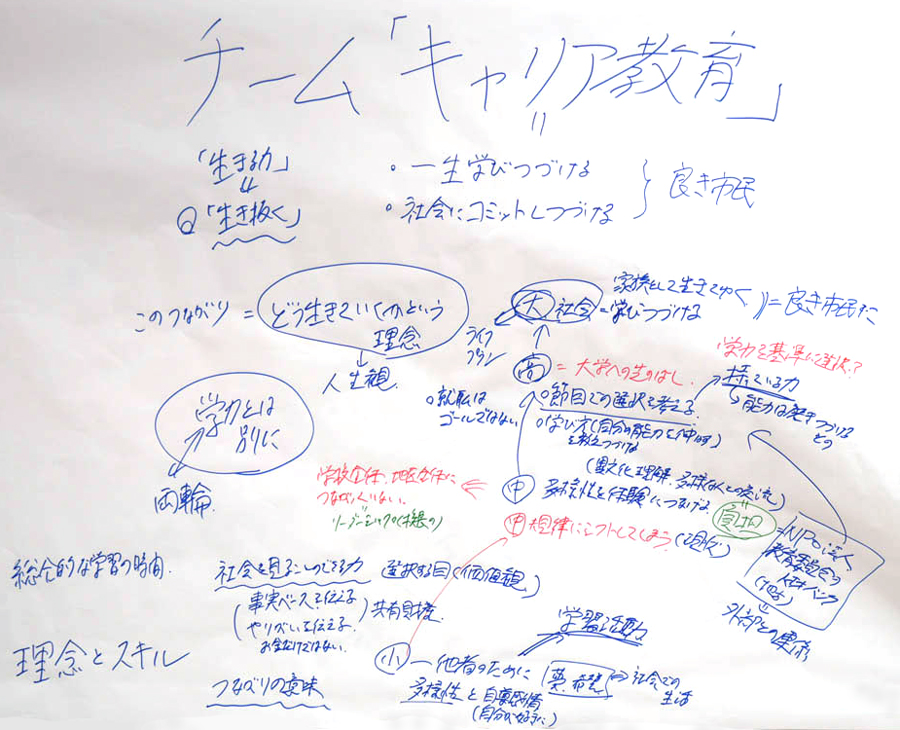 チーム「キャリア教育」
「生きる力」
・一生学びつづける
良き市民
「生き抜く」
・社会にコミットしつづける
このつながり = どう生きていくかという
理念
人生観
大 社会 = 学びつづける
家族として生きてゆく
= 良き市民
ライフ
プラン
高 = 大学への差のはし
学力を基準に選択?
持っている力
能力は
・就職は
ゴールではない
・節目での選択を考える
・学び方(自分の能力を伸ばす)
(異文化理解、多様な人との交流)
学力とは
別に
両輪
学校全体、地区全体に
つながっていない
リーダーシップ
中 多様性を体験につなげる
中 規律にシフトしてしまう
負担
= NPO法人
教育委員会の
人材バンク
外部との連携
総合的な学習の時間
社会を見ることのできる力
選択する目(価値観)
(事実ベースを伝える
やりがいを伝える
お金だけではない)
共有
学習を活動
理念とスキル
小 一他者のために
夢・希望
社会での
生活
つながりの意味
多様性と自尊感情
(自分が好きに)